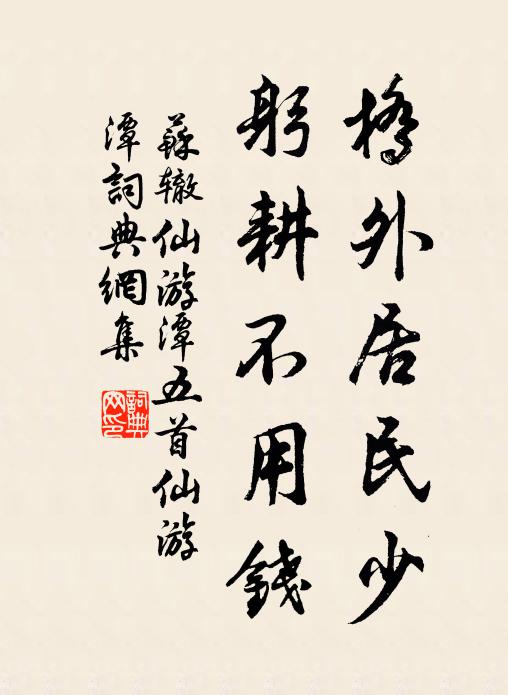 橋外居民少
躬耕不用錢
蘇辙仙游潭五首仙游
潭詞典網集
詞典網印